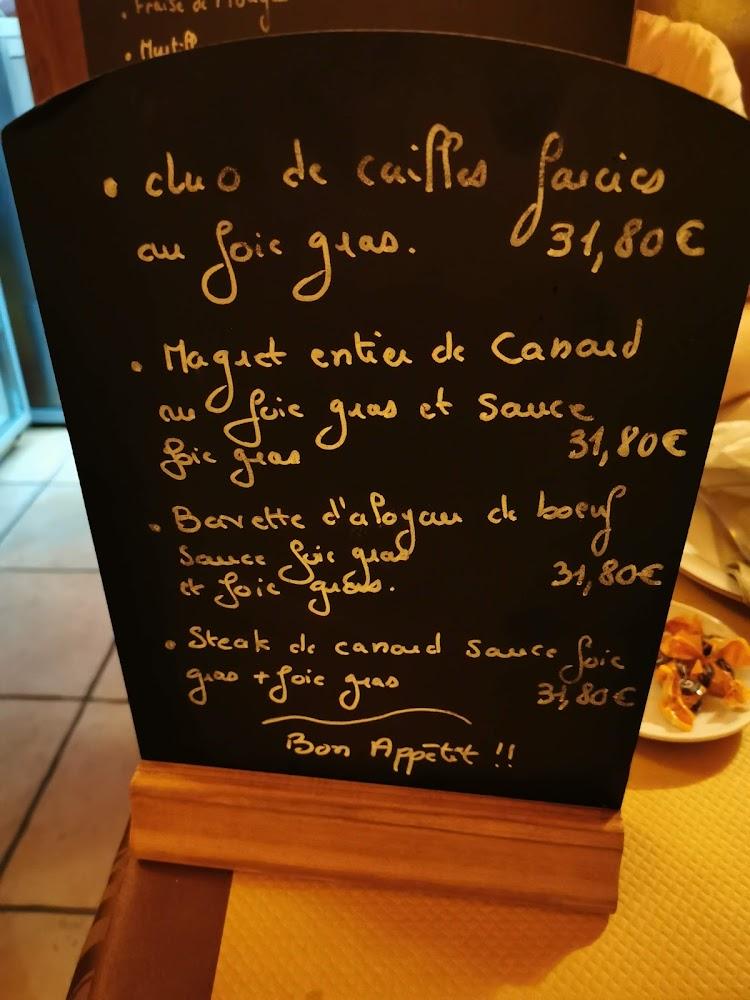 . Fraise de
• Must
• duo de cailles farcies
au foie gras. 31,80€
• Magret entier de Canard
au foie gras et sauce
foie gras 31,80€
• Bavette d'aloyau de boeuf
Sauce foie gras
et foie gras. 31,80€
• Steak de canard sauce foie
gras + foie gras 31,80€
Bon Appétit !!